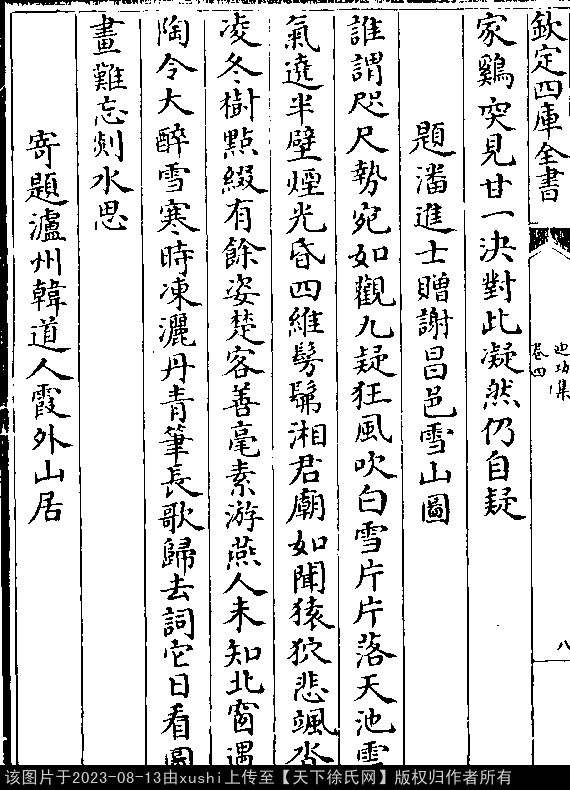 欽定四庫全書
迪功集
卷四
八
家雞突見甘一決對此凝然仍自疑
題潘進士贈謝昌邑雪山圖
誰謂咫尺勢宛如觀九疑狂風吹白雪片片落天池雪
氣遶半壁煙光昏四維髣髴湘君廟如聞猿狖悲颯沓
凌冬樹點綴有餘姿楚客善毫素游燕人未知北窗遇
陶令大醉雪寒時凍灑丹青筆長歌歸去詞它日看圖
畫難忘剡水思
寄題瀘州韓道人霞外山居
该图片于2023-08-13由xushi上传至【天下徐氏网】版权归作者所有